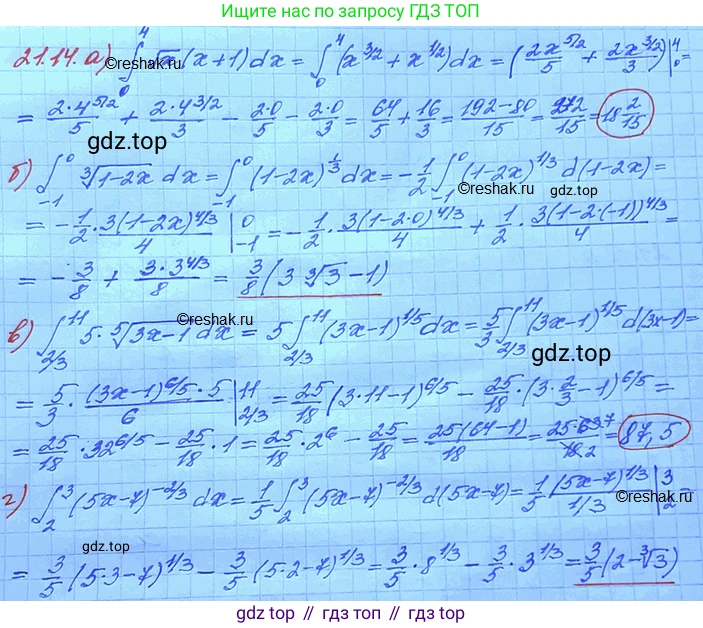 Ищите ответы по запросу ГДЗ ТОП
21.14. а) ∫₀⁴ √x (x+1) dx = ∫₀⁴ (x^{3/2} + x^{1/2}) dx = (2x^{5/2}/5 + 2x^{3/2}/3)|₀⁴ =
= 2·4^{5/2}/5 + 2·4^{3/2}/3 − 2·0/5 − 2·0/3 = 64/5 + 16/3 = 192−80/15 = 272/15 = 18 2/15
gdz.top
©reshak.ru
б) ∫₋₁⁰ ∛(1−2x) dx = ∫₋₁⁰ (1−2x)^{1/3} dx = −1/2 ∫₋₁⁰ (1−2x)^{1/3} d(1−2x) =
©reshak.ru
= −1/2 · 3(1−2x)^{4/3}/4 |₋₁⁰ = −1/2 · 3(1−2·0)^{4/3}/4 + 1/2 · 3(1−2·(−1))^{4/3}/4 =
= −3/8 + 3·3^{4/3}/8 = 3/8 (3∛3 − 1)
©reshak.ru
в) ∫_{2/3}^{11} 5·⁵√(3x−1) dx = 5 ∫_{2/3}^{11} (3x−1)^{1/5} dx = 5/3 ∫_{2/3}^{11} (3x−1)^{1/5} d(3x−1) =
gdz.top
= 5/3 · (3x−1)^{6/5}·5/6 |_{2/3}^{11} = 25/18 (3·11−1)^{6/5} − 25/18 · (3·2/3 − 1)^{6/5} =
= 25/18 · 32^{6/5} − 25/18 · 1 = 25/18 · 2⁶ − 25/18 = 25(64−1)/18 = 25·63 7/18 2 = 87,5
г) ∫₂³ (5x−7)^{−2/3} dx = 1/5 ∫₂³ (5x−7)^{−2/3} d(5x−7) = 1/5 (5x−7)^{1/3}/1/3 |₂³ =
gdz.top
©reshak.ru
= 3/5 (5·3−7)^{1/3} − 3/5 (5·2−7)^{1/3} = 3/5 · 8^{1/3} − 3/5 · 3^{1/3} = 3/5 (2−∛3)
gdz top // гдз топ // gdz.top